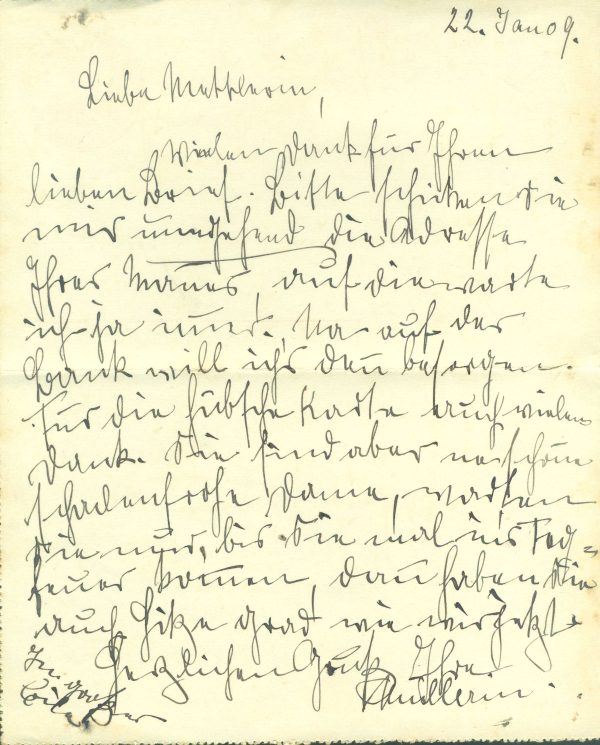 22. Jan 09.
Liebe Mettlerin,
Vielen Dank für Ihren
lieben Brief. Bitte schicken Sie
mir umgehend die Adresse
Ihres Mannes, auf die warte
ich ja immer. Na auf der
Bank will ich's denn besorgen.
Für die hübsche Karte auch vielen
Dank. Sie sind aber ne schöne
schadenfrohe Dame, warten
Sie nur, bis Sie mal in's Feg=
feuer kommen, dann haben Sie
auch Hitze grad wie wir jetzt.
Herzlichen Gruß Ihre
Müllerin.
In großer
Eile